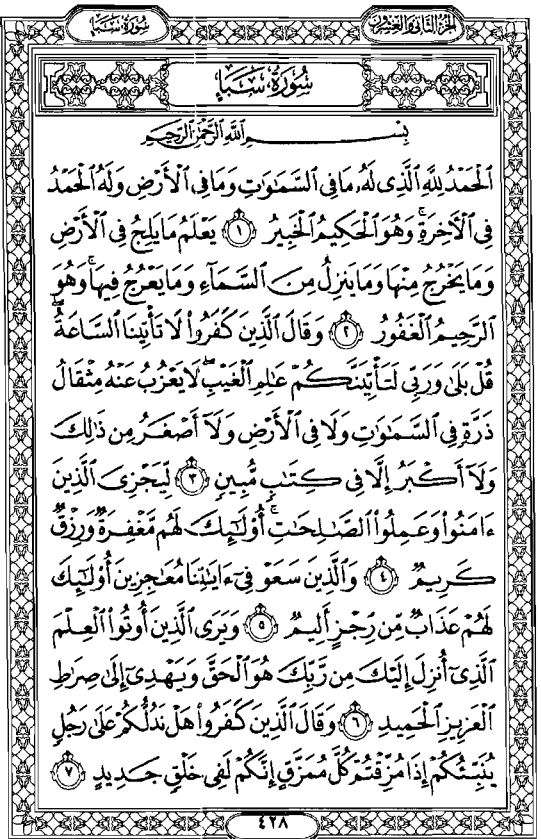 سُورَةُ سَبَإٍ
الجُزءُ الثَّانِي وَالعِشْرُونَ
سُورَةُ سَبَإٍ
بِسْمِ ٱللَّهِ ٱلرَّحْمَٰنِ ٱلرَّحِيمِ
ٱلْحَمْدُ لِلَّهِ ٱلَّذِى لَهُۥ مَا فِى ٱلسَّمَٰوَٰتِ وَمَا فِى ٱلْأَرْضِ وَلَهُ ٱلْحَمْدُ
فِى ٱلْأَخِرَةِۚ وَهُوَ ٱلْحَكِيمُ ٱلْخَبِيرُ ١ يَعْلَمُ مَا يَلِجُ فِى ٱلْأَرْضِ
وَمَا يَخْرُجُ مِنْهَا وَمَا يَنزِلُ مِنَ ٱلسَّمَآءِ وَمَا يَعْرُجُ فِيهَاۚ وَهُوَ
ٱلرَّحِيمُ ٱلْغَفُورُ ٢ وَقَالَ ٱلَّذِينَ كَفَرُوا۟ لَا تَأْتِينَا ٱلسَّاعَةُۖ
قُلْ بَلَىٰ وَرَبِّى لَتَأْتِيَنَّكُمْ عَٰلِمِ ٱلْغَيْبِۖ لَا يَعْزُبُ عَنْهُ مِثْقَالُ
ذَرَّةٍ فِى ٱلسَّمَٰوَٰتِ وَلَا فِى ٱلْأَرْضِ وَلَآ أَصْغَرُ مِن ذَٰلِكَ
وَلَآ أَكْبَرُ إِلَّا فِى كِتَٰبٍ مُّبِينٍ ٣ لِّيَجْزِىَ ٱلَّذِينَ
ءَامَنُوا۟ وَعَمِلُوا۟ ٱلصَّٰلِحَٰتِۚ أُو۟لَٰٓئِكَ لَهُم مَّغْفِرَةٌ وَرِزْقٌ
كَرِيمٌ ٤ وَٱلَّذِينَ سَعَوْ فِىٓ ءَايَٰتِنَا مُعَٰجِزِينَ أُو۟لَٰٓئِكَ
لَهُمْ عَذَابٌ مِّن رِّجْزٍ أَلِيمٌ ٥ وَيَرَى ٱلَّذِينَ أُوتُوا۟ ٱلْعِلْمَ
ٱلَّذِىٓ أُنزِلَ إِلَيْكَ مِن رَّبِّكَ هُوَ ٱلْحَقَّ وَيَهْدِىٓ إِلَىٰ صِرَٰطِ
ٱلْعَزِيزِ ٱلْحَمِيدِ ٦ وَقَالَ ٱلَّذِينَ كَفَرُوا۟ هَلْ نَدُلُّكُمْ عَلَىٰ رَجُلٍ
يُنَبِّئُكُمْ إِذَا مُزِّقْتُمْ كُلَّ مُمَزَّقٍ إِنَّكُمْ لَفِى خَلْقٍ جَدِيدٍ ٧
٤٢٨